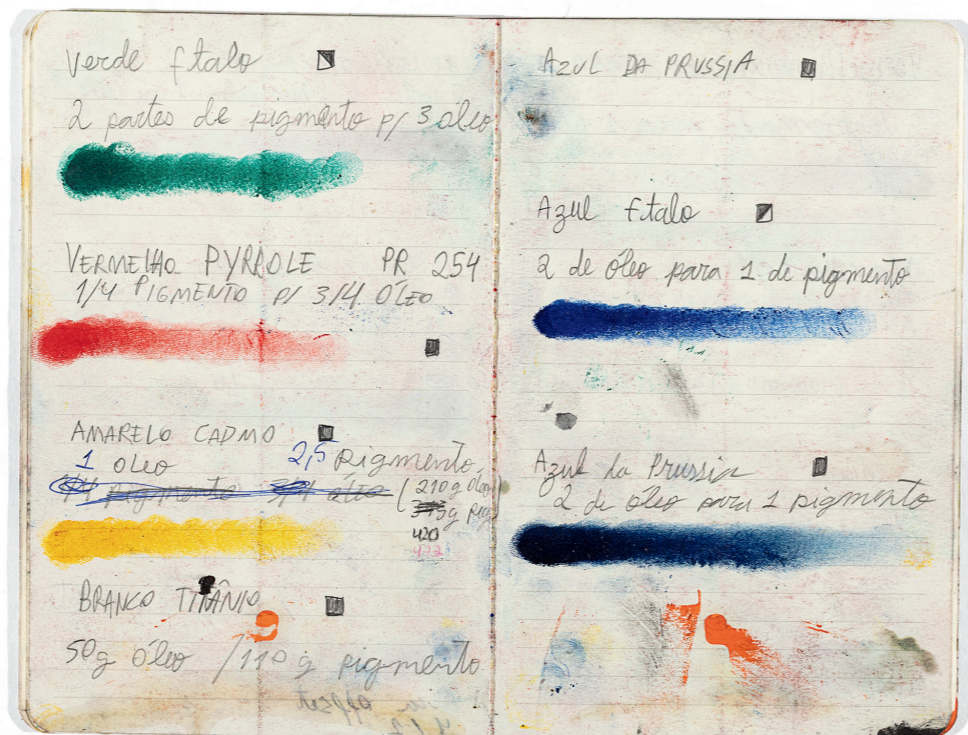 Verde ftalo
2 partes de pigmento p/ 3 óleo
VERMELHO PYRROLE PR 254
1/4 PIGMENTO P/ 3/4 ÓLEO
AMARELO CADMO
1 OLEO 2,5 Pigmento
1/4 pigmento 3/4 óleo (210g óleo
g pig
420
472
BRANCO TITÂNIO
50g óleo / 110 g pigmento
AZUL DA PRUSSIA
Azul ftalo
2 de óleo para 1 de pigmento
Azul da Prussia
2 de óleo para 1 pigmento